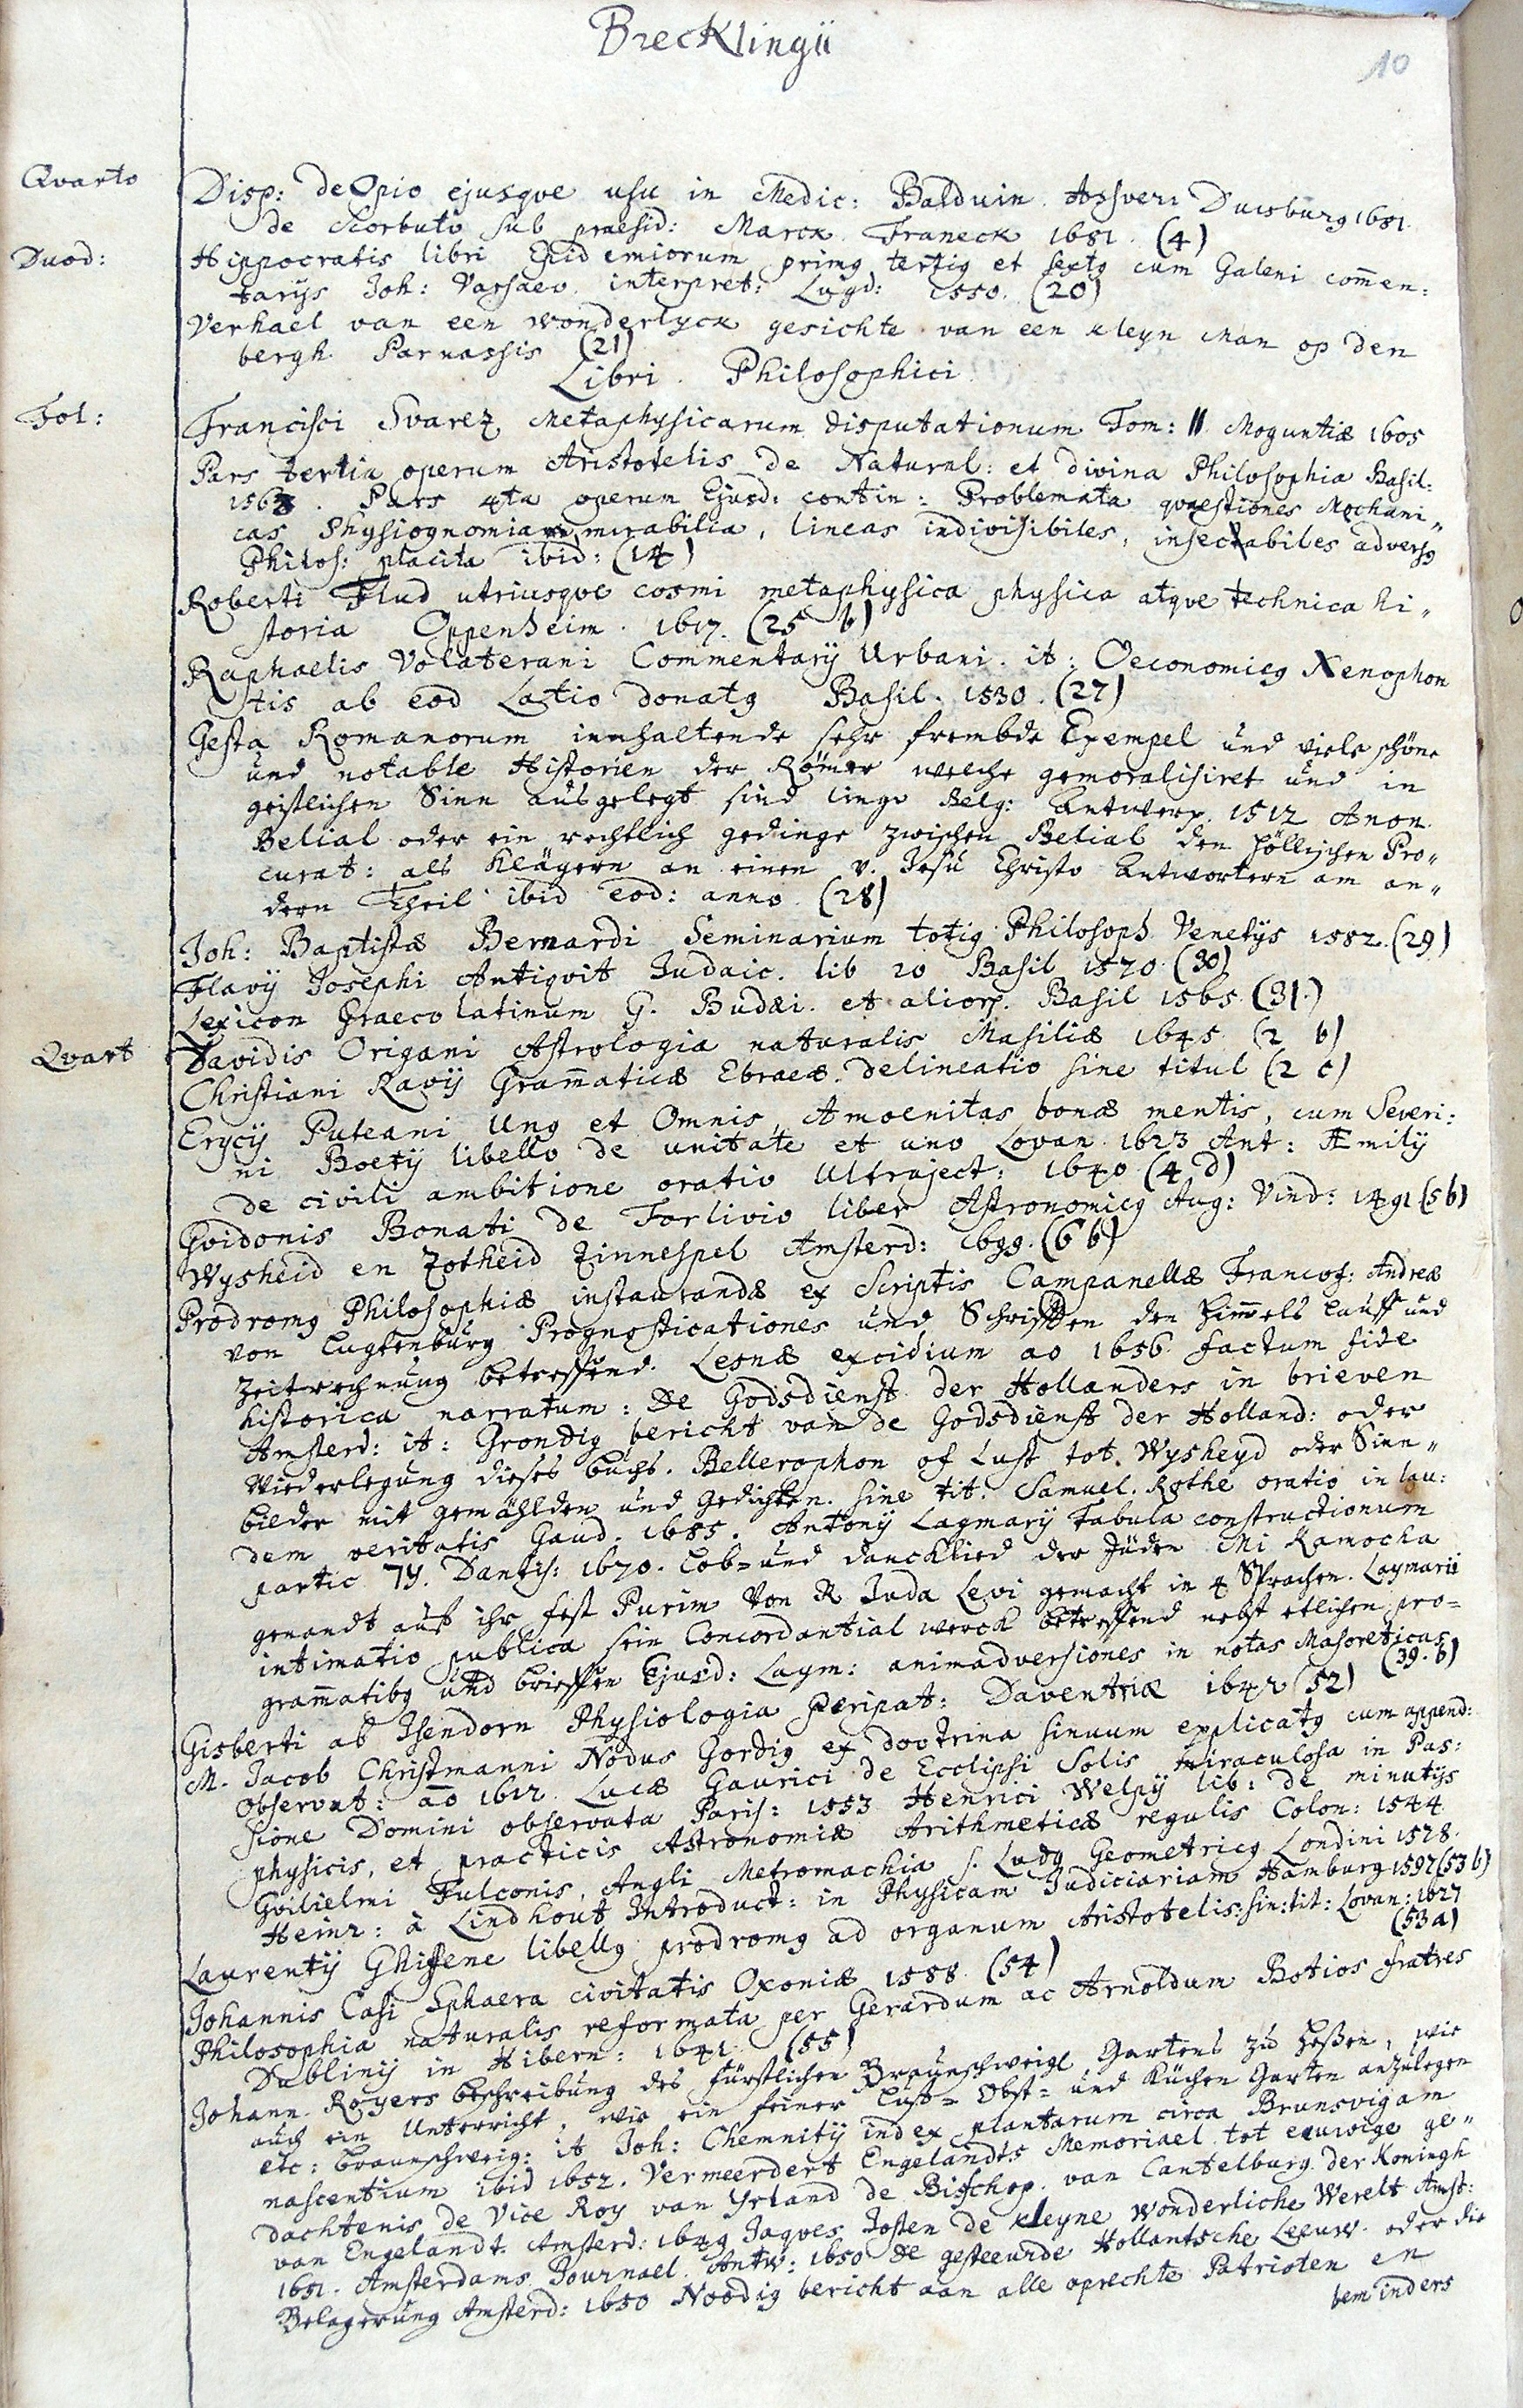 Brecklingii
10
Qvarto
Disp: de Opio ejusqve usu in Medic: Balduin. Assver: Duisburg 1681.
de scorbuto sub praesid: Marck. Franeck 1681. (4)
Duod:
Hippocratis libri Epidemiorum primg tertig et sextg cum Galeni com̄en:
tarijs Joh: Vassaeo interpret: Lugd: 1550. (20)
Verhael van een wonderlyck gesichte van een kleyn Man op den
bergh Parnassis (21)
Libri Philosophici
Fol:
Francisci Svarez Metaphysicarum disputationum Tom: II Moguntiæ 1605
Pars tertia operum Aristotelis de Natural: et divina Philosophia Basil:
1563. Pars 4ta operum Ejusd: contin: Problemata qvaestiones Mechani„
cas Physiognomiam mirabilia, lineas indivisibiles, insectabiles adversg
Philos: placita ibid: (14)
Roberti Flud utriusqve cosmi metaphysica physica atqve technica hi„
storia Oppenheim. 1617. (25 b)
Raphaelis Volaterani Commentarij Urbani. it: Oeconomicg Xenophon
tis ab eod Latio donatg Basil. 1530. (27)
Gesta Romanorum innhaltende sehr frembde Exempel und viele schöne
und notable Historien der Römer welche gemoralisiret und in
geistlichen Sinn ausgelegt sind lingv Belg: Antwerp. 1512 Anon.
Belial oder ein rechtlich gedinge zwischen Belial den höllischen Pro„
curat: als Klägern an einen v. Jesu Christo Antwortern am an„
dern Theil ibid eod: anno (28)
Joh: Baptistæ Bernardi Seminarium totig Philosoph Venetijs 1582. (29)
Flavij Josephi Antiqvit Judaic. lib 20 Basil 1570. (30)
Lexicon Graeco latinum G. Budæi. et alior. Basil 1565. (31.)
Qvart
Davidis Origani Astrologia naturalis Masiliæ 1645. (2 b)
Christiani Ravij Gram̄aticæ Ebraeæ. delineatio sine titul (2 c)
Erycij Puteani Ung et Omnis, Amoenitas bonæ mentis, cum Severi:
ni Boetij libello de unitate et uno Lovan. 1623 Ant: Æmilij
de civili ambitione oratio Ultraject: 1640 (4 d)
Gvidonis Bonati de Forlivio liber Astronomicg Aug: Vind: 1491 (5 b)
Wysheid en Zotheid Zinnespel Amsterd: 1699. (6 b)
Prodromg Philosophiæ instaurandæ ex Scriptis Campanellæ Francof: Andreæ
von Lugtenburg Prognosticationes und Schrifften den Him̄els Lauff und
Zeitrechnung betreffend. Lesnæ excidium ao 1656. factum fide
historica narratum: De Godsdienst der Hollanders in brieven
Amsterd: it: Grondig bericht van de Godsdienst der Holland: oder
Wiederlegung dieses buchs. Bellerophon of Lust tot. Wysheyd oder Sinn„
bilder mit gemählden und Gedichten. sine tit: Samuel. Rothe oratio in lau:
dem veritatis Gaud. 1685. Antonij Laymarij Tabula constructionum
partic 74. Dantis: 1670. Lob- und dancklied der Jüden Mi Kamocha
genandt auf ihr fest Purim von R. Juda Levi gemacht in 4 Sprachen. Laymarii
intimatio publica sein Concordantial werck betreffend nebst etlichen pro-
gram̄atibg und brieffen Ejusd: Laym: animadversiones in notas Masoreticas
(39. b)
Gisberti ab Isendorn Physiologia peripat: Daventriæ 1642 (52)
M. Jacob Christmanni Nodus Gordig ex doctrina sinuum explicatg cum append:
Observat: ao 1612. Lucæ Gaurici de Ecclipsi Solis miraculosa in Pas:
sione Domini observata Paris: 1553 Henrici Welpij lib: de minutijs
physicis, et practicis Astronomiæ Arithmeticæ regulis Colon: 1544
Gvilielmi Fulconis, Angli Metromachia s. Ludg Geometricg Londini 1578.
Heinr: à Lindhout Introduct: in Physicam Judiciariam Hamburg 1597 (53 b)
Laurentij Ghiffene libellg prodromg ad organum Aristotelis: sin: tit: Lovan: 1627
(53 a)
Johannis Casi Sphaera civitatis Oxoniæ 1588. (54)
Philosophia naturalis reformata per Gerardum ac Arnoldum Botios fratres
Dublinij in Hibern: 1641 (55)
Johann. Royers beschreibung des fürstlichen Braunschweigl Gartens zu Heßen, wie
auch ein Unterricht, wie ein feiner Lust- Obst- und Küchen Garten anzulegen
etc: braunschweig: it Joh: Chemnitij index plantarum circa Brunsvigam
nascentium ibid 1652. Vermeerdert Engelandts Memoriael tot eeuwige ge„
dachtenis de Vice Roy van Yrland de Bisschop. van Cantelburg. der Koningh
van Engelandt. Amsterd: 1649 Jaqves Josten de kleyne Wonderliche Werelt Amst:
1651. Amsterdams Journael. Antw: 1650 De gesteeurde Hollantsche Leeuw. oder die
Belagerung Amsterd: 1650 Noodig bericht aan alle oprechte Patrioten en
beminders